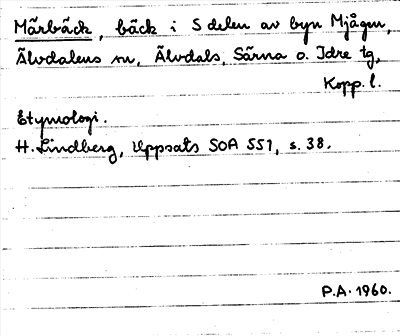 Märbäck, bäck i S delen av byn Mjågen,
Älvdalens sn, Älvdals, Särna o. Idre tg,
Kopp. l.
Etymologi.
H. Lindberg, Uppsats SOA 551, s. 38.
P.A. 1960.